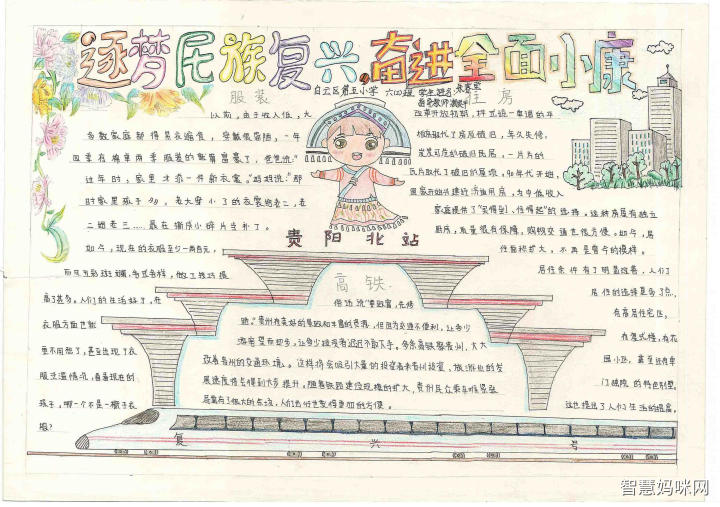 逐梦民族复兴,奋进全面小康
白云区第五小学 六(2)班 学生姓名:
服装
以前,由于收入低,大
多数家庭都得省衣缩食,穿戴很简陋,一年
四季有换单两季服装的数算富裹了,爸爸说:
过年时,家里才添一件新衣裳。"妈妈说:"那
时家里孩子多,老大穿小了的衣裳给老二,老
二给老三……最后撕成小碎片当补丁。
如今,现在的衣服至少一两百元,
而且五彩斑斓,各式各样,他们
高了甚多。人们的生活好了,在
衣服方面也就
更不用愁了,甚至出现了衣
服泛滥情况,看看现在的
孩子,哪一个不是一橱子衣
服?
住房
改革开放初期,样式统一单调的平
相继取代了房屋破旧,年久失修,
岌岌可危的破旧民居,一片片的
瓦片取代了破旧的屋顶,90年代开始,
国家开始兴建经济适用房,为中低收入
家庭提供了"买得到、住得起"的选择,这种房屋有独立
厨房,质量很有保障,购物交通也很方便。如今,居
住面积扩大,不再是曾今的模样。
居住条件有了明显改善,人们
居住的选择更多了点,
有高层住宅区,
有复式楼,有花
园小区,甚至还有单
门独院的特色别墅,
这也提高了人们生活的质高。
贵阳北站
高铁
俗话说"要致富,先修
路。"贵州有美好的景致和丰富的资源,但因为交通不便利,让多少
游客望而却步,让多少投资者迟迟不敢下手。多条高铁聚贵州,大大
改善贵州的交通环境。这样将会吸引大量的投资者来贵州投资,旅游业的发
展速度将会得到大步提升,随着铁路建设规模的扩大,贵州民众乘车难紧张
局面有了很大的好转,人们出行也变得更加的方便。
复兴号
智慧妈咪网